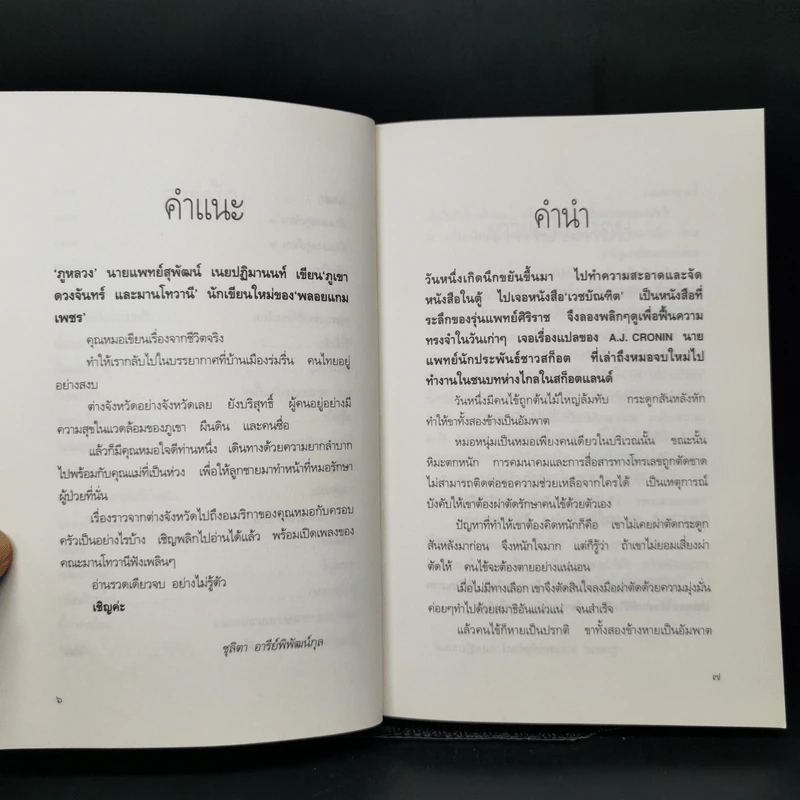 คำแนะ
'ภูหลวง' นายแพทย์สุพัฒน์ เนยปฏิมานนท์ เขียน'ภูเขา
ดวงจันทร์ และมานโทวานี' นักเขียนใหม่ของ'พลอยแกม
เพชร'
คุณหมอเขียนเรื่องจากชีวิตจริง
ทำให้เรากลับไปในบรรยากาศที่บ้านเมืองร่มรื่น คนไทยอยู่
อย่างสงบ
ต่างจังหวัดอย่างจังหวัดเลย ยังบริสุทธิ์ ผู้คนอยู่อย่างมี
ความสุขในแวดล้อมของภูเขา ผืนดิน และคนซื่อ
แล้วก็มีคุณหมอใจดีท่านหนึ่ง เดินทางด้วยความยากลำบาก
ไปพร้อมกับคุณแม่ที่เป็นห่วง เพื่อให้ลูกชายมาทำหน้าที่หมอรักษา
ผู้ป่วยที่นั่น
เรื่องราวจากต่างจังหวัดไปถึงอเมริกาของคุณหมอกับครอบ
ครัวเป็นอย่างไรบ้าง เชิญพลิกไปอ่านได้แล้ว พร้อมเปิดเพลงของ
คณะมานโทวานีฟังเพลินๆ
อ่านรวดเดียวจบ อย่างไม่รู้ตัว
เชิญค่ะ
ชุลิตา อารีย์พิพัฒน์กุล
๖
คำนำ
วันหนึ่งเกิดนึกขยันขึ้นมา ไปทำความสะอาดและจัด
หนังสือในตู้ ไปเจอหนังสือ'เวชบัณฑิต' เป็นหนังสือที่
ระลึกของรุ่นแพทย์ศิริราช จึงลองพลิกๆดูเพื่อฟื้นความ
ทรงจำในวันเก่าๆ เจอเรื่องแปลของ A.J. CRONIN นาย
แพทย์นักประพันธ์ชาวสก็อต ที่เล่าถึงหมอจบใหม่ไป
ทำงานในชนบทห่างไกลในสก็อตแลนด์
วันหนึ่งมีคนไข้ถูกต้นไม้ใหญ่ล้มทับ กระดูกสันหลังหัก
ทำให้ขาทั้งสองข้างเป็นอัมพาต
หมอหนุ่มเป็นหมอเพียงคนเดียวในบริเวณนั้น ขณะนั้น
หิมะตกหนัก การคมนาคมและการสื่อสารทางโทรเลขถูกตัดขาด
ไม่สามารถติดต่อขอความช่วยเหลือจากใครได้ เป็นเหตุการณ์
บังคับให้เขาต้องผ่าตัดรักษาคนไข้ด้วยตัวเอง
ปัญหาที่ทำให้เขาต้องคิดหนักก็คือ เขาไม่เคยผ่าตัดกระดูก
สันหลังมาก่อน จึงหนักใจมาก แต่ก็รู้ว่า ถ้าเขาไม่ยอมเสี่ยงผ่า
ตัดให้ คนไข้จะต้องตายอย่างแน่นอน
เมื่อไม่มีทางเลือก เขาจึงตัดสินใจลงมือผ่าตัดด้วยความมุ่งมั่น
ค่อยๆทำไปด้วยสมาธิอันแน่วแน่ จนสำเร็จ
แล้วคนไข้ก็หายเป็นปรกติ ขาทั้งสองข้างหายเป็นอัมพาต
๗